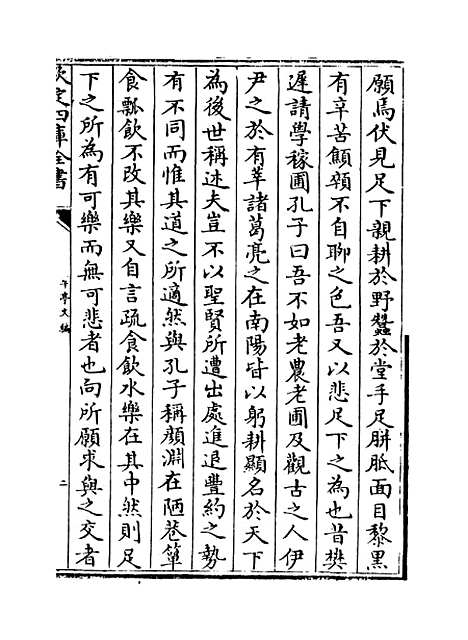 願焉伏見足下親耕於野蠶於堂手足胼胝面目黎黑
有辛苦顦顇不自聊之色吾又以悲足下之為也昔樊
遲請學稼圃孔子曰吾不如老農老圃及觀古之人伊
尹之於有莘諸葛亮之在南陽皆以躬耕顯名於天下
為後世稱述夫豈不以聖賢所遭出處進退豐約之勢
有不同而惟其道之所適然與孔子稱顔淵在陋巷簞
食瓢飲不改其樂又自言疏食飲水樂在其中然則足
下之所為有可樂而無可悲者也向所願求與之交者
欽定四庫全書
午亭文編
二